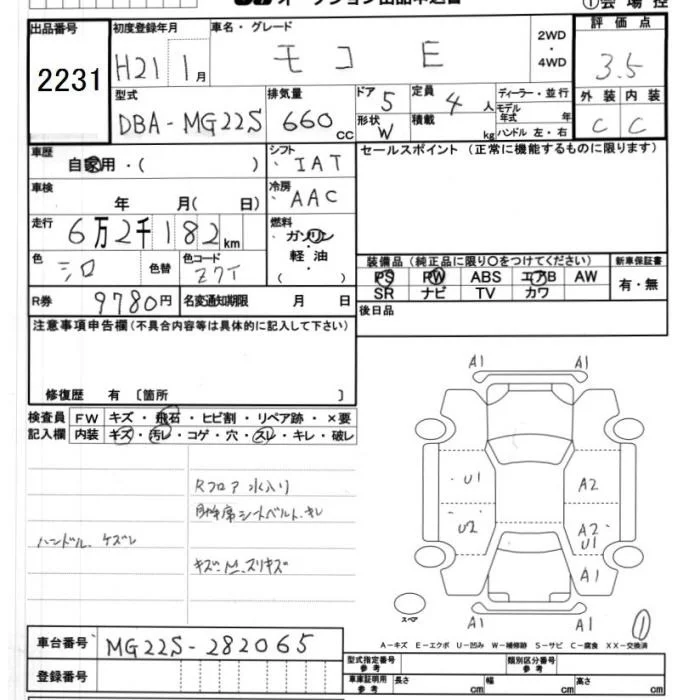 オークション出品申込書
①会場控
出品番号 初度登録年月 車名・グレード 2WD ・ 4WD 評価点
2231 H21 1月 モコ E 3.5
型式 排気量 ドア 5 定員 4人 ディーラー・並行 外装 内装
DBA-MG22S 660cc 形状 W 積載 kg モデル年式 年 ハンドル 左・右 C C
車歴 シフト セールスポイント (正常に機能するものに限ります)
自家用・( ) IAT
車検 冷房
年 月( 日) AAC
走行 燃料
6万2千182km ガソリン
軽油
( )
色 シロ 色替 色コード Z7T
装備品 (純正品に限り○をつけてください) 新車保証書
PS PW ABS エアB AW 有・無
SR ナビ TV カワ
R券 9780円 名変通知期限 月 日 後日品
注意事項申告欄(不具合内容等は具体的に記入して下さい)
修復歴 有 〔箇所 〕
検査員 FW キズ・飛石・ヒビ割・リペア跡・×要
記入欄 内装 キズ・汚レ・コゲ・穴・スレ・キレ・破レ
Rフロア 水入り
助手席シートベルト、キレ
ハンドル、ケズレ
キズ、M、スリキズ
A1 A1
U1 A2
U2 A2 U1
A1
A1 A1
スペア
①
A-キズ E-エクボ U-凹み W-補修跡 S-サビ C-腐食 XX-交換済
車台番号 MG22S-282065
登録番号
型式指定番号 参考 類別区分番号 参考
車庫証明用 参考 長さ cm 幅 cm 高さ cm